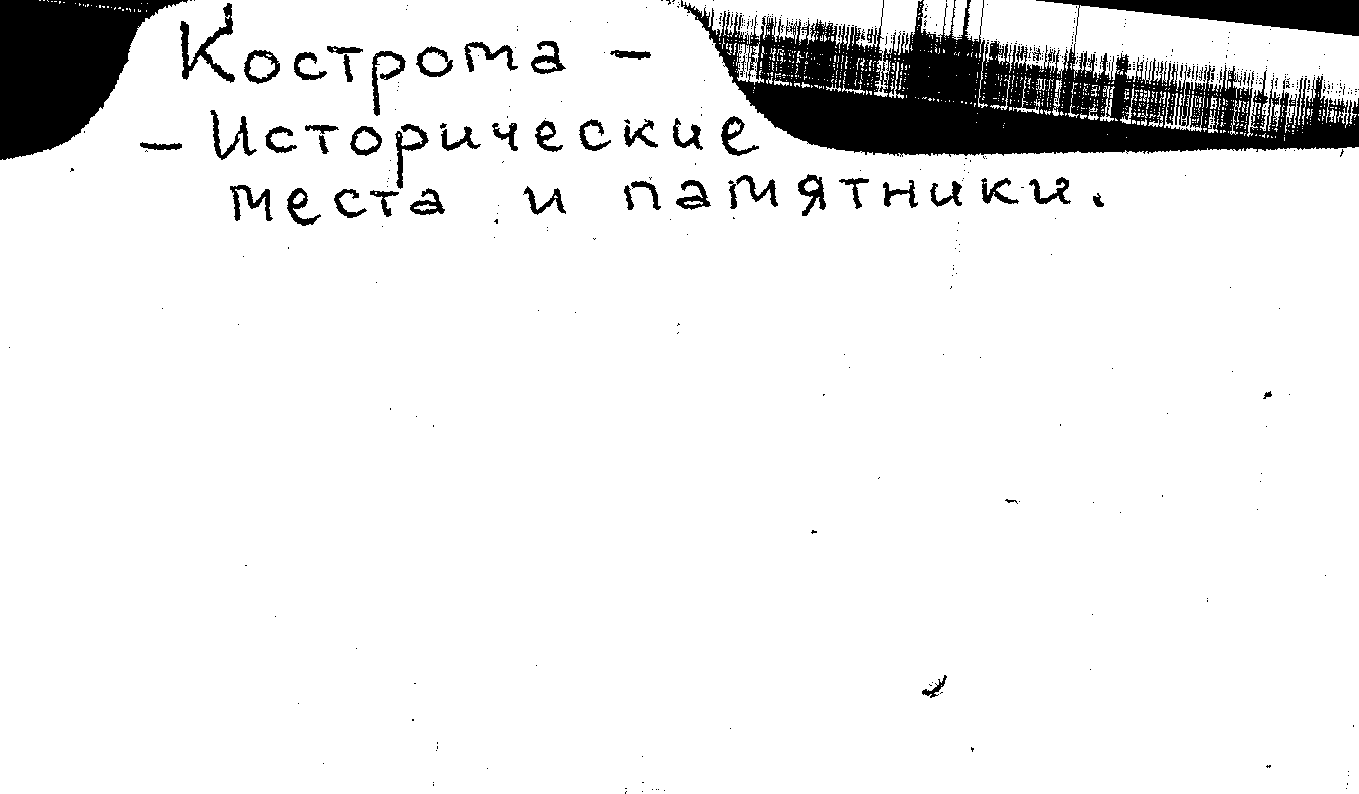 Кострома –
– Исторические
места и памятники.